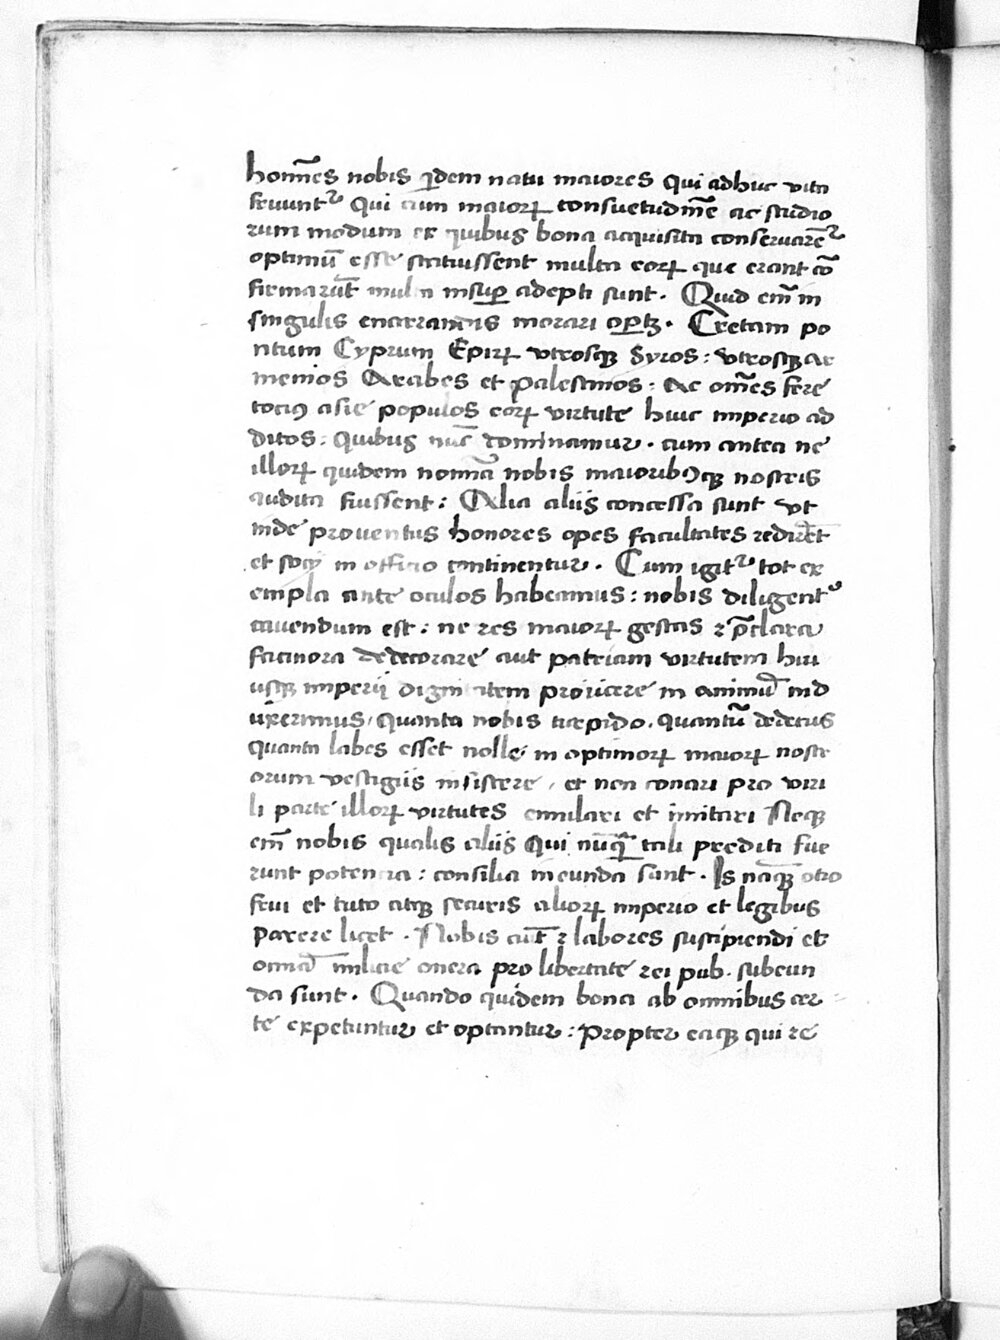 hom̄es nobis q̄dem natu maiores qui adhuc vita
fruunt᷑ qui cum maioꝝ consuetudīe ac studio
rum modum ex quibus bona acquisita conseruarēt᷑
optimū esse statuissent multa eoꝝ que erant cō
firmarūt multa insuꝑ adepti sunt. Quid em̄ in
singulis enarrandis morari oꝑtꝫ. Cretam po
ntum Cyprum Epiꝝ vtrosqꝫ Syros: vtrosqꝫ ar
menios Arabes et palestinos: Ac om̄es fere
totiꝰ asie populos eoꝝ virtute huic imperio ad
ditos: quibus nūc dominamur. cum antea ne
illoꝝ quidem nomīa nobis maioribꝰqꝫ nostris
audita fuissent: Alia aliis concessa sunt vt
inde prouentus honores opes facultates redirēt
et socij in officio continentur. Cum igit᷑ tot ex
empla ante oculos habeamus: nobis diligent᷑
cauendum est: ne res maioꝝ gestas ⁊ p̄clara
facinora dedecorare aut patriam virtutem hui
usqꝫ imperij dignitatem proiicere in animū ind
uxerimus, quanta nobis turpido. quantū dedecus
quanta labes esset nolle in optimoꝝ maioꝝ nostr
orum vestigiis insistere, et non conari pro viri
li parte illoꝝ virtutes emulari et imitari Neqꝫ
em̄ nobis qualis aliis qui nūqꝫ tali prediti fue
runt potencia: consilia ineunda sunt. Is nāqꝫ otio
frui et tuto atqꝫ securis alioꝝ imperio et legibus
parere licet. Nobis aūt ⁊ labores suscipiendi et
omīa milicie onera pro libertate rei pub. subeun
da sunt. Quando quidem bona ab omnibus cer
te expetuntur et optantur: propter eaqꝫ qui re